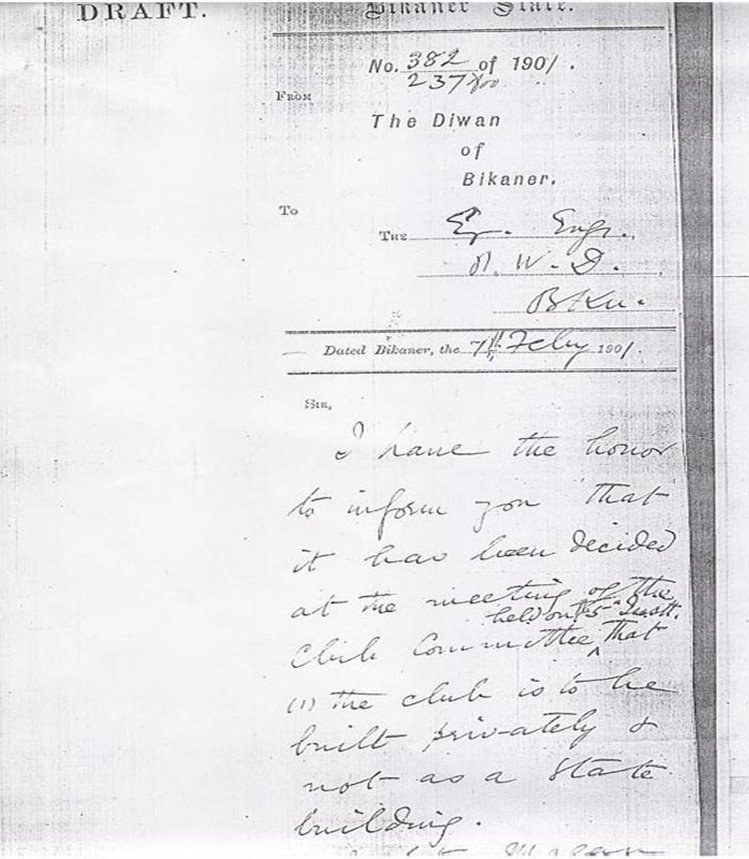 DRAFT.
Bikaner State.
No. 382 of 1901.
237
FROM
The Diwan
of
Bikaner.
To
THE Ex. Engr.
P. W. D.
Dated Bikaner, the 7th Feby 1901.
SIR,
I have the honor
to inform you that
it has been decided
at the meeting of the
held on 5th
Club Committee ^ that
(1) the club is to be
built privately &
not as a State
building.